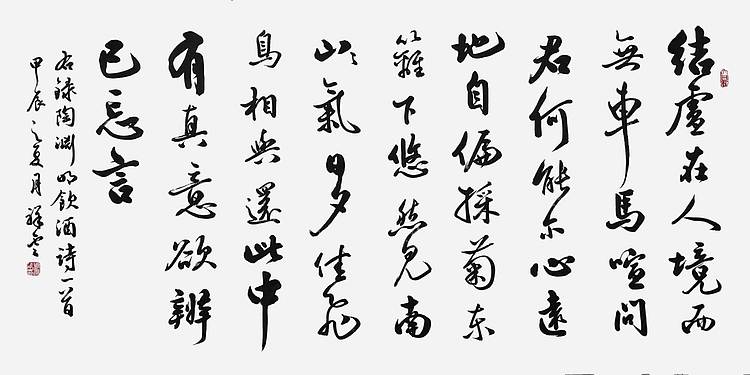 結廬在人境而
無車馬喧問
君何能尔心遠
地自偏採菊东
籬下悠然見南
山〻氣日夕佳飛
鳥相與還此中
有真意欲辨
已忘言
右録陶渊明飲酒詩一首
甲辰之夏月祥雲